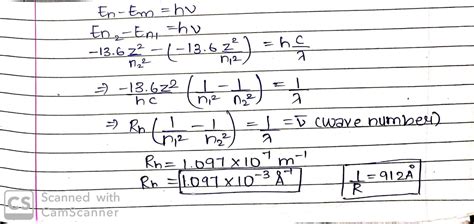 En - Em = hν
En₂ - En₁ = hν
-13.6 z²/n₂² - (-13.6 z²/n₁²) = h c/λ
⇒ -13.6z²/hc (1/n₁² - 1/n₂²) = 1/λ
⇒ Rh (1/n₁² - 1/n₂²) = 1/λ = ν̄ (wave number)
Rh = 1.097 × 10⁻⁷ m⁻¹
Rh = 1.097 × 10⁻³ Å⁻¹ 1/R = 912Å
CS Scanned with
CamScanner